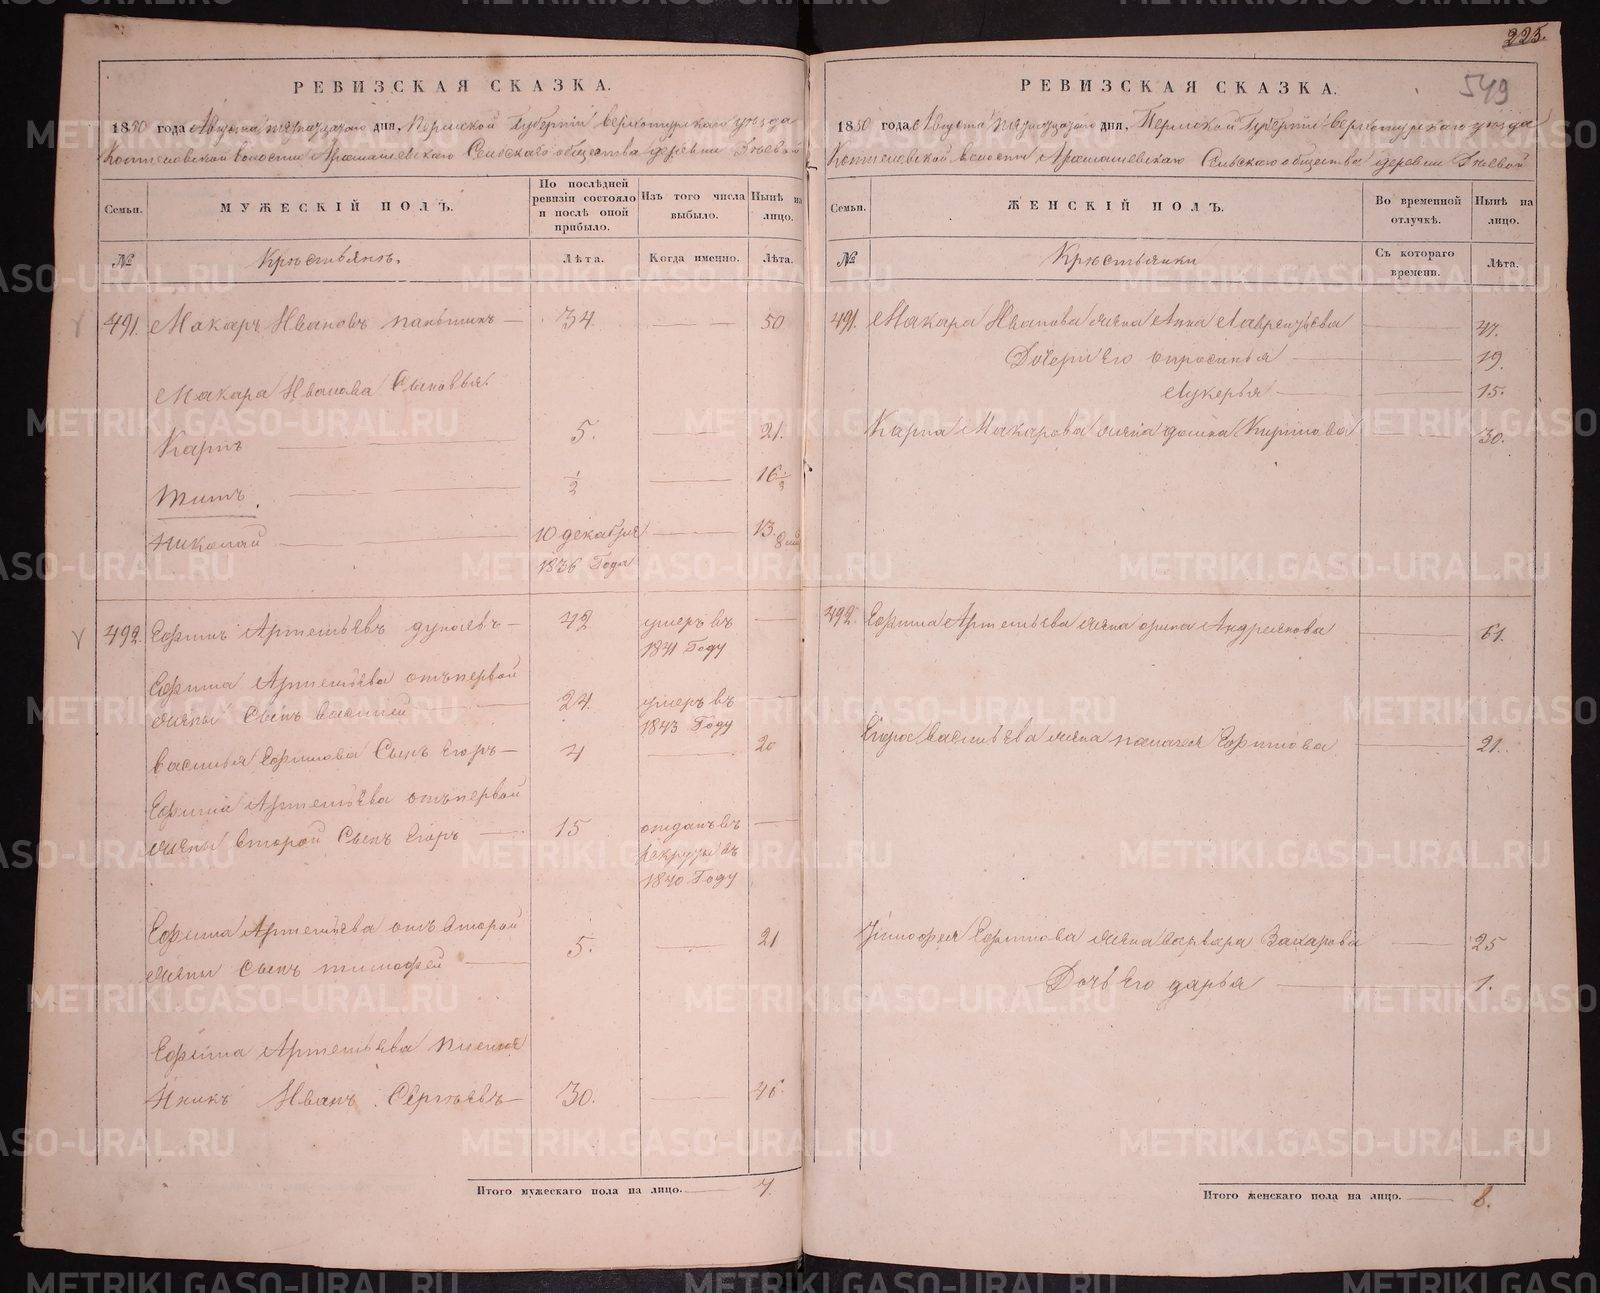 225.
549
РЕВИЗСКАЯ СКАЗКА.
1850 года Августа дня, Пермской Губернiи верхотурскаго уезда
волости Арамашевскаго Сельскаго общества деревни
Семьи.
МУЖЕСКIЙ ПОЛЪ.
По послѣдней ревизiи состояло и послѣ оной прибыло.
Изъ того числа выбыло.
Нынѣ на лицо.
№
Крестьянъ.
Лѣта.
Когда именно.
Лѣта.
491. Макаръ Ивановъ паньшинъ 34 50
Макара Иванова Сыновья.
Карпъ 5. 21.
Титъ 1/2 16 1/2
Николай 10 декабря 13.
1836 Года
492 Ефимъ Артемьевъ дунаевъ 42 умеръ въ
1841 Году
Ефима Артемьева отъ первой
жены Сынъ василей 24. умеръ въ
1843 Году
василья Ефимова Сынъ Егоръ 4 20
Ефима Артемьева отъ первой
жены второй Сынъ Егоръ 15 отданъ въ
рекруты въ
1840 Году
Ефима Артемьева отъ второй
жены Сынъ тимофей 5. 21
Ефима Артемьева племя
нникъ Иванъ Сергѣевъ 30. 46
Итого мужескаго пола на лицо. 7.
РЕВИЗСКАЯ СКАЗКА.
1850 года Августа дня, Пермской Губернiи верхотурскаго уезда
волости Арамашевскаго Сельскаго общества деревни
Семьи.
ЖЕНСКIЙ ПОЛЪ.
Во временной отлучкѣ.
Нынѣ на лицо.
№
Крестьянки
Съ котораго времени.
Лѣта.
491. Макара Иванова жена Анна Лаврентьева 47.
Дочери его опросинья 19.
Лукерья 15.
Карпа Макарова жена домна 30.
492. Ефима Артемьева жена орина Андреянова 61.
Егора васильева жена палагея Ефимова 21.
Тимофея Ефимова жена варвара Захарова 25
Дочь его дарья 1.
Итого женскаго пола на лицо. 8.
METRIKI.GASO-URAL.RU